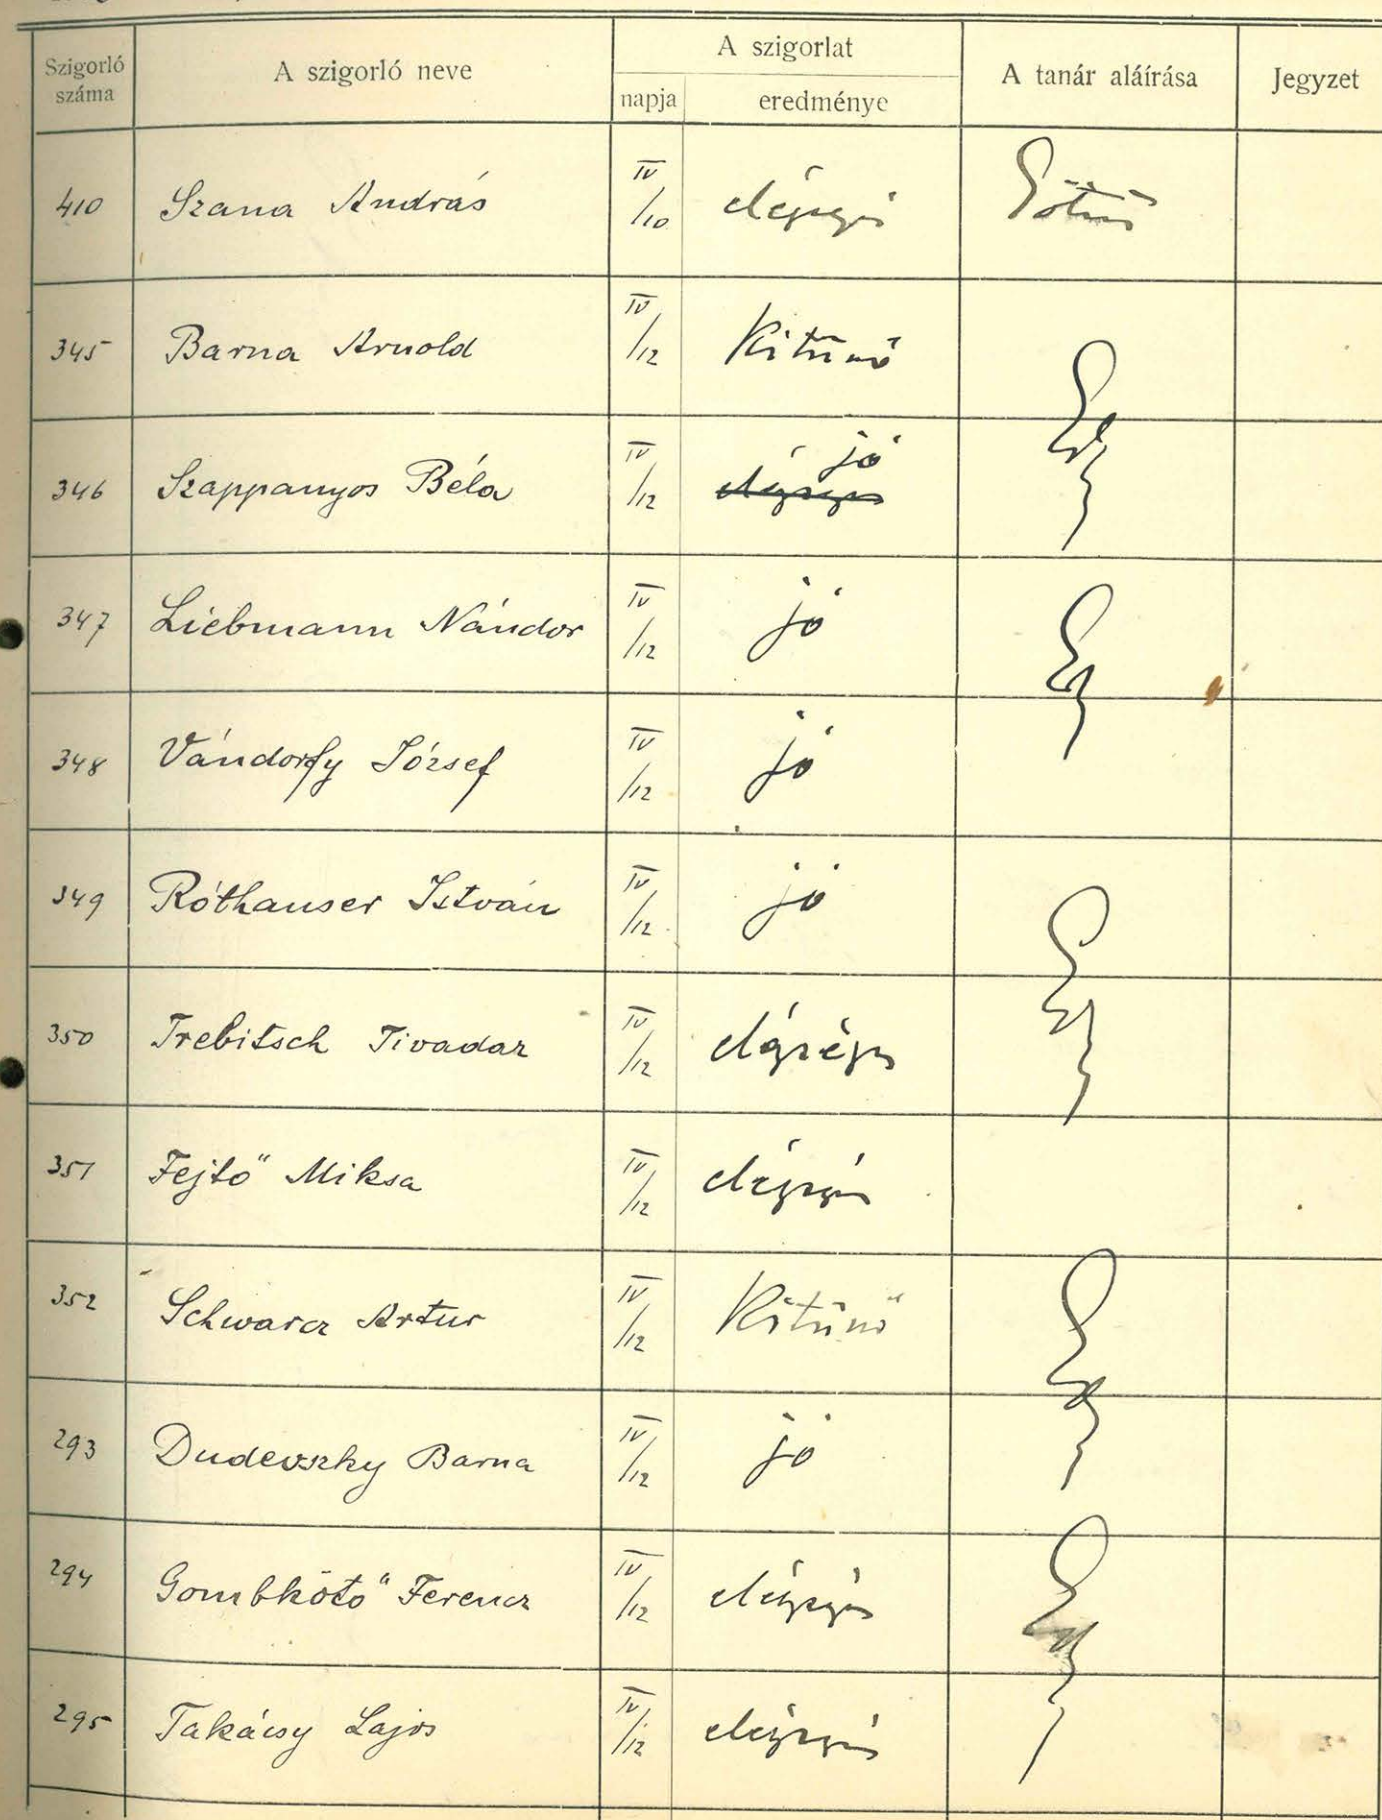 Szigorló száma | A szigorló neve | A szigorlat napja | A szigorlat eredménye | A tanár aláírása | Jegyzet
410 Szana András IV/10 elégséges
345 Barna Arnold IV/12 Kitűnő
346 Szappanyos Béla IV/12 elégséges jó
347 Liebmann Nándor IV/12 jó
348 Vándorfy József IV/12 jó
349 Róthauser István IV/12 jó
350 Trebitsch Tivadar IV/12 elégséges
351 Fejtő Miksa IV/12 elégséges
352 Schwarcz Artur IV/12 Kitűnő
293 Dudevszky Barna IV/12 jó
294 Gombkötő Ferencz IV/12 elégséges
295 Takácsy Lajos IV/12 elégséges